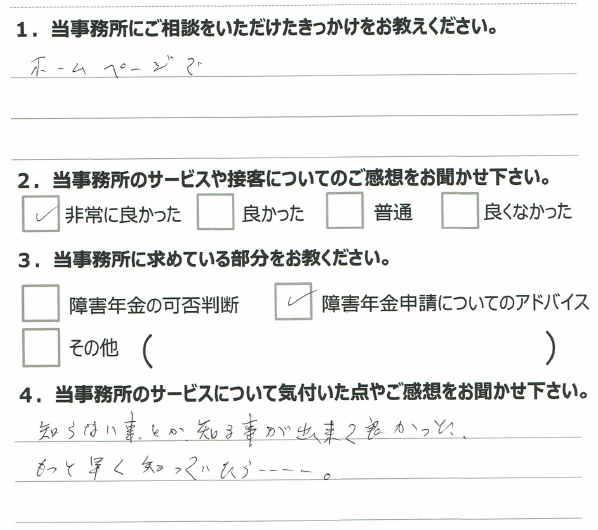 1．当事務所にご相談をいただけたきっかけをお教えください。
ホームページで
2．当事務所のサービスや接客についてのご感想をお聞かせ下さい。
非常に良かった 良かった 普通 良くなかった
3．当事務所に求めている部分をお教ください。
障害年金の可否判断 障害年金申請についてのアドバイス
その他 （ ）
4．当事務所のサービスについて気付いた点やご感想をお聞かせ下さい。
知らない事とか、知る事が出来て良かった、
もっと早く知っていたら－－－－。